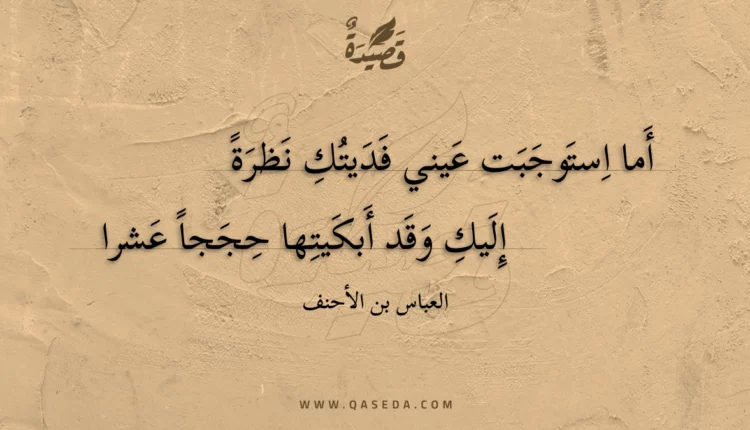 قَصِيْدَةٌ
أَما اِستَوجَبَت عَيني فَدَيتُكِ نَظرَةً
إِلَيكِ وَقَد أَبكَيتِها حِجَجاً عَشرا
العباس بن الأحنف
WWW.QASEDA.COM